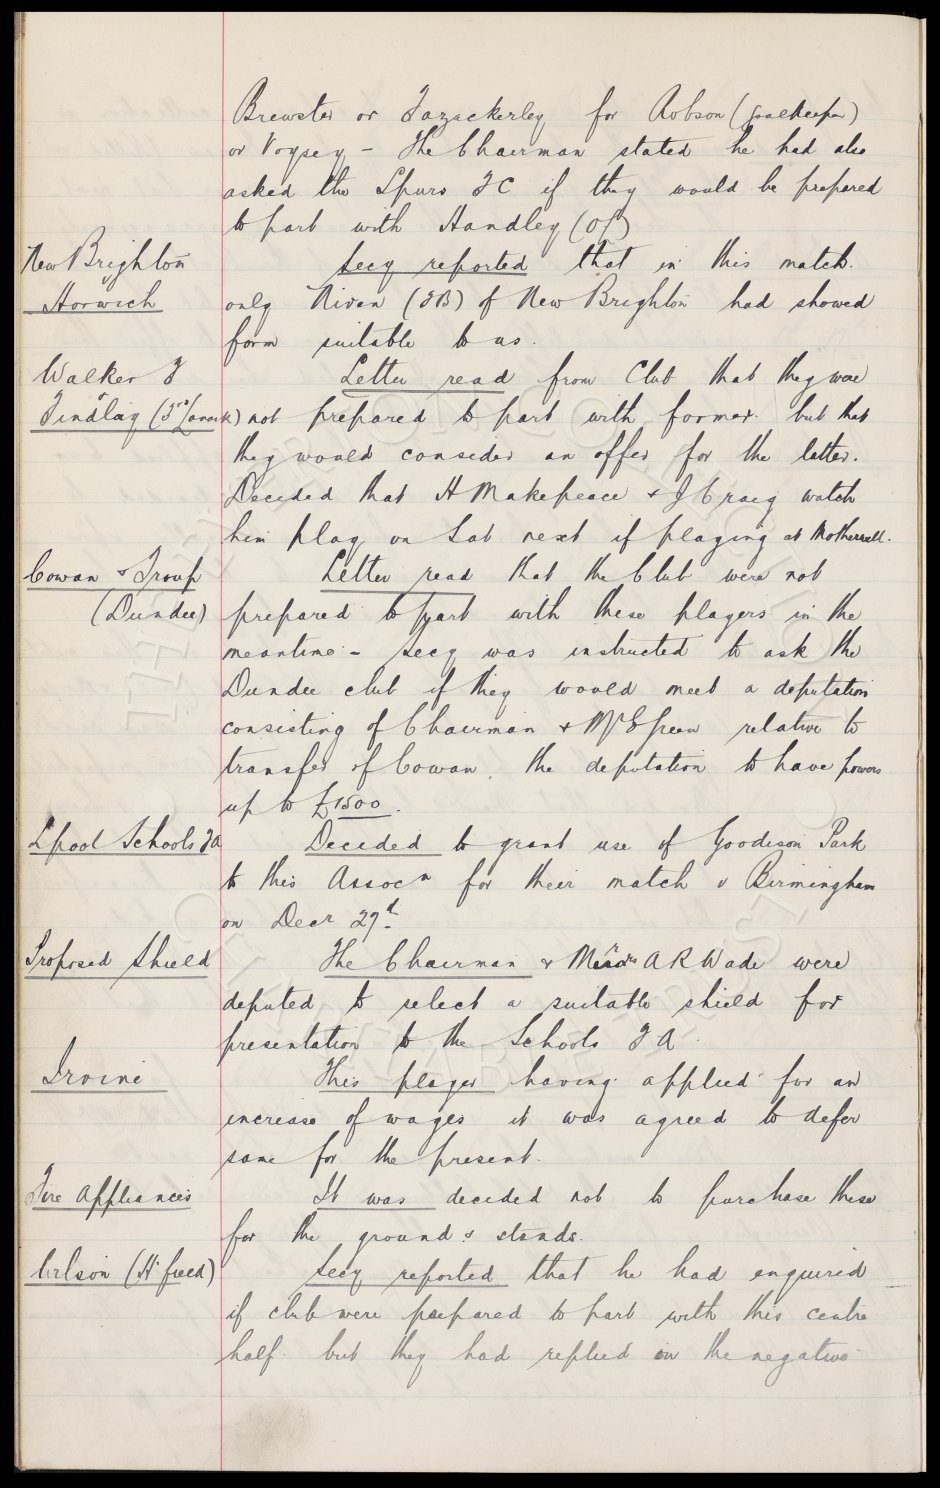 Brewster or Fazackerley for Robson (Goalkeeper)
or Voysey - The Chairman stated he had also
asked the Spurs FC if they would be prepared
to part with Handley (OF)
New Brighton
Horwich
Secy reported that in this match
only Niven (FB) of New Brighton had showed
form suitable to us.
Walker F
Findlay (3rd Lanark)
Letter read from Club that they were
not prepared to part with former but that
they would consider an offer for the latter.
Decided that H Makepeace & J Craig watch
him play on Sat next if playing at Motherwell.
Cowan & Troup
(Dundee)
Letter read that the Club were not
prepared to part with these players in the
meantime - Secy was instructed to ask the
Dundee club if they would meet a deputation
consisting of Chairman & Mr E Green relative to
transfer of Cowan, the deputation to have powers
up to £1500.
Lpool Schools FA
Decided to grant use of Goodison Park
to this Assocn for their match v Birmingham
on Decr 29th
Proposed Shield
The Chairman & Mr A R Wade were
deputed to select a suitable shield for
presentation to the Schools F A
Irvine
This player having applied for an
increase of wages it was agreed to defer
same for the present.
Fire Appliances
It was decided not to purchase these
for the ground & stands.
Wilson (H'field)
Secy reported that he had enquired
if club were prepared to part with this centre
half but they had replied in the negative